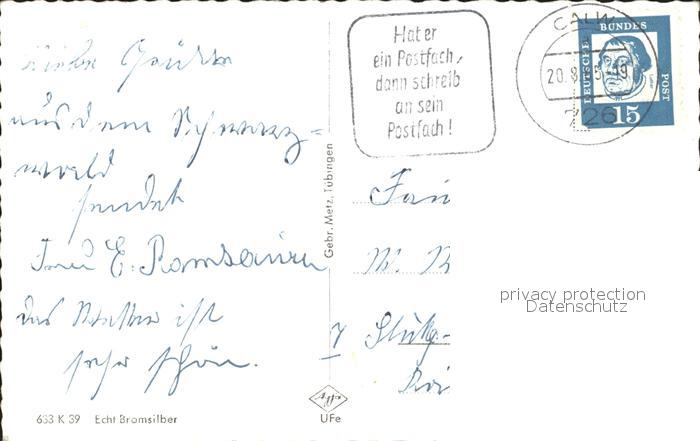 Liebe Grüße
aus dem Schwarz-
wald
sendet
Frau E. Ramsauer
das Wetter ist
sehr schön.
633 K 39 Echt Bromsilber
Gebr. Metz, Tübingen
UFe
Hat er
ein Postfach,
dann schreib
an sein
Postfach!
CALW
20.8.
726
DEUTSCHE
BUNDES
POST
15
Frau
7
privacy protection
Datenschutz